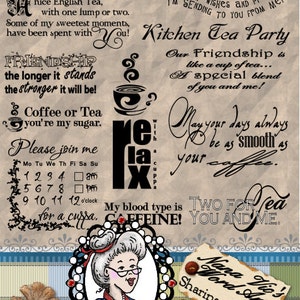 A nice English Tea,
with one lump or two.
Some of my sweetest moments,
have been spent with You!
I'm sending to you from me!
Kitchen Tea Party
Our Friendship is
like a cup of tea...
A special blend
of you and me!
FRIENDSHIP
the longer it stands
the stronger it will be!
Coffee or Tea
you're my sugar.
relax
with a cuppa
May your days always
be as smooth as
your coffee.
Please join me
Mo Tu We Th Fr Sa Su
1 2 3 4
5 6 7 8
9 10 11 12 o'clock
for a cuppa.
My blood type is
CAFFEINE!
TWO FOR Tea
YOU AND ME
Sharing